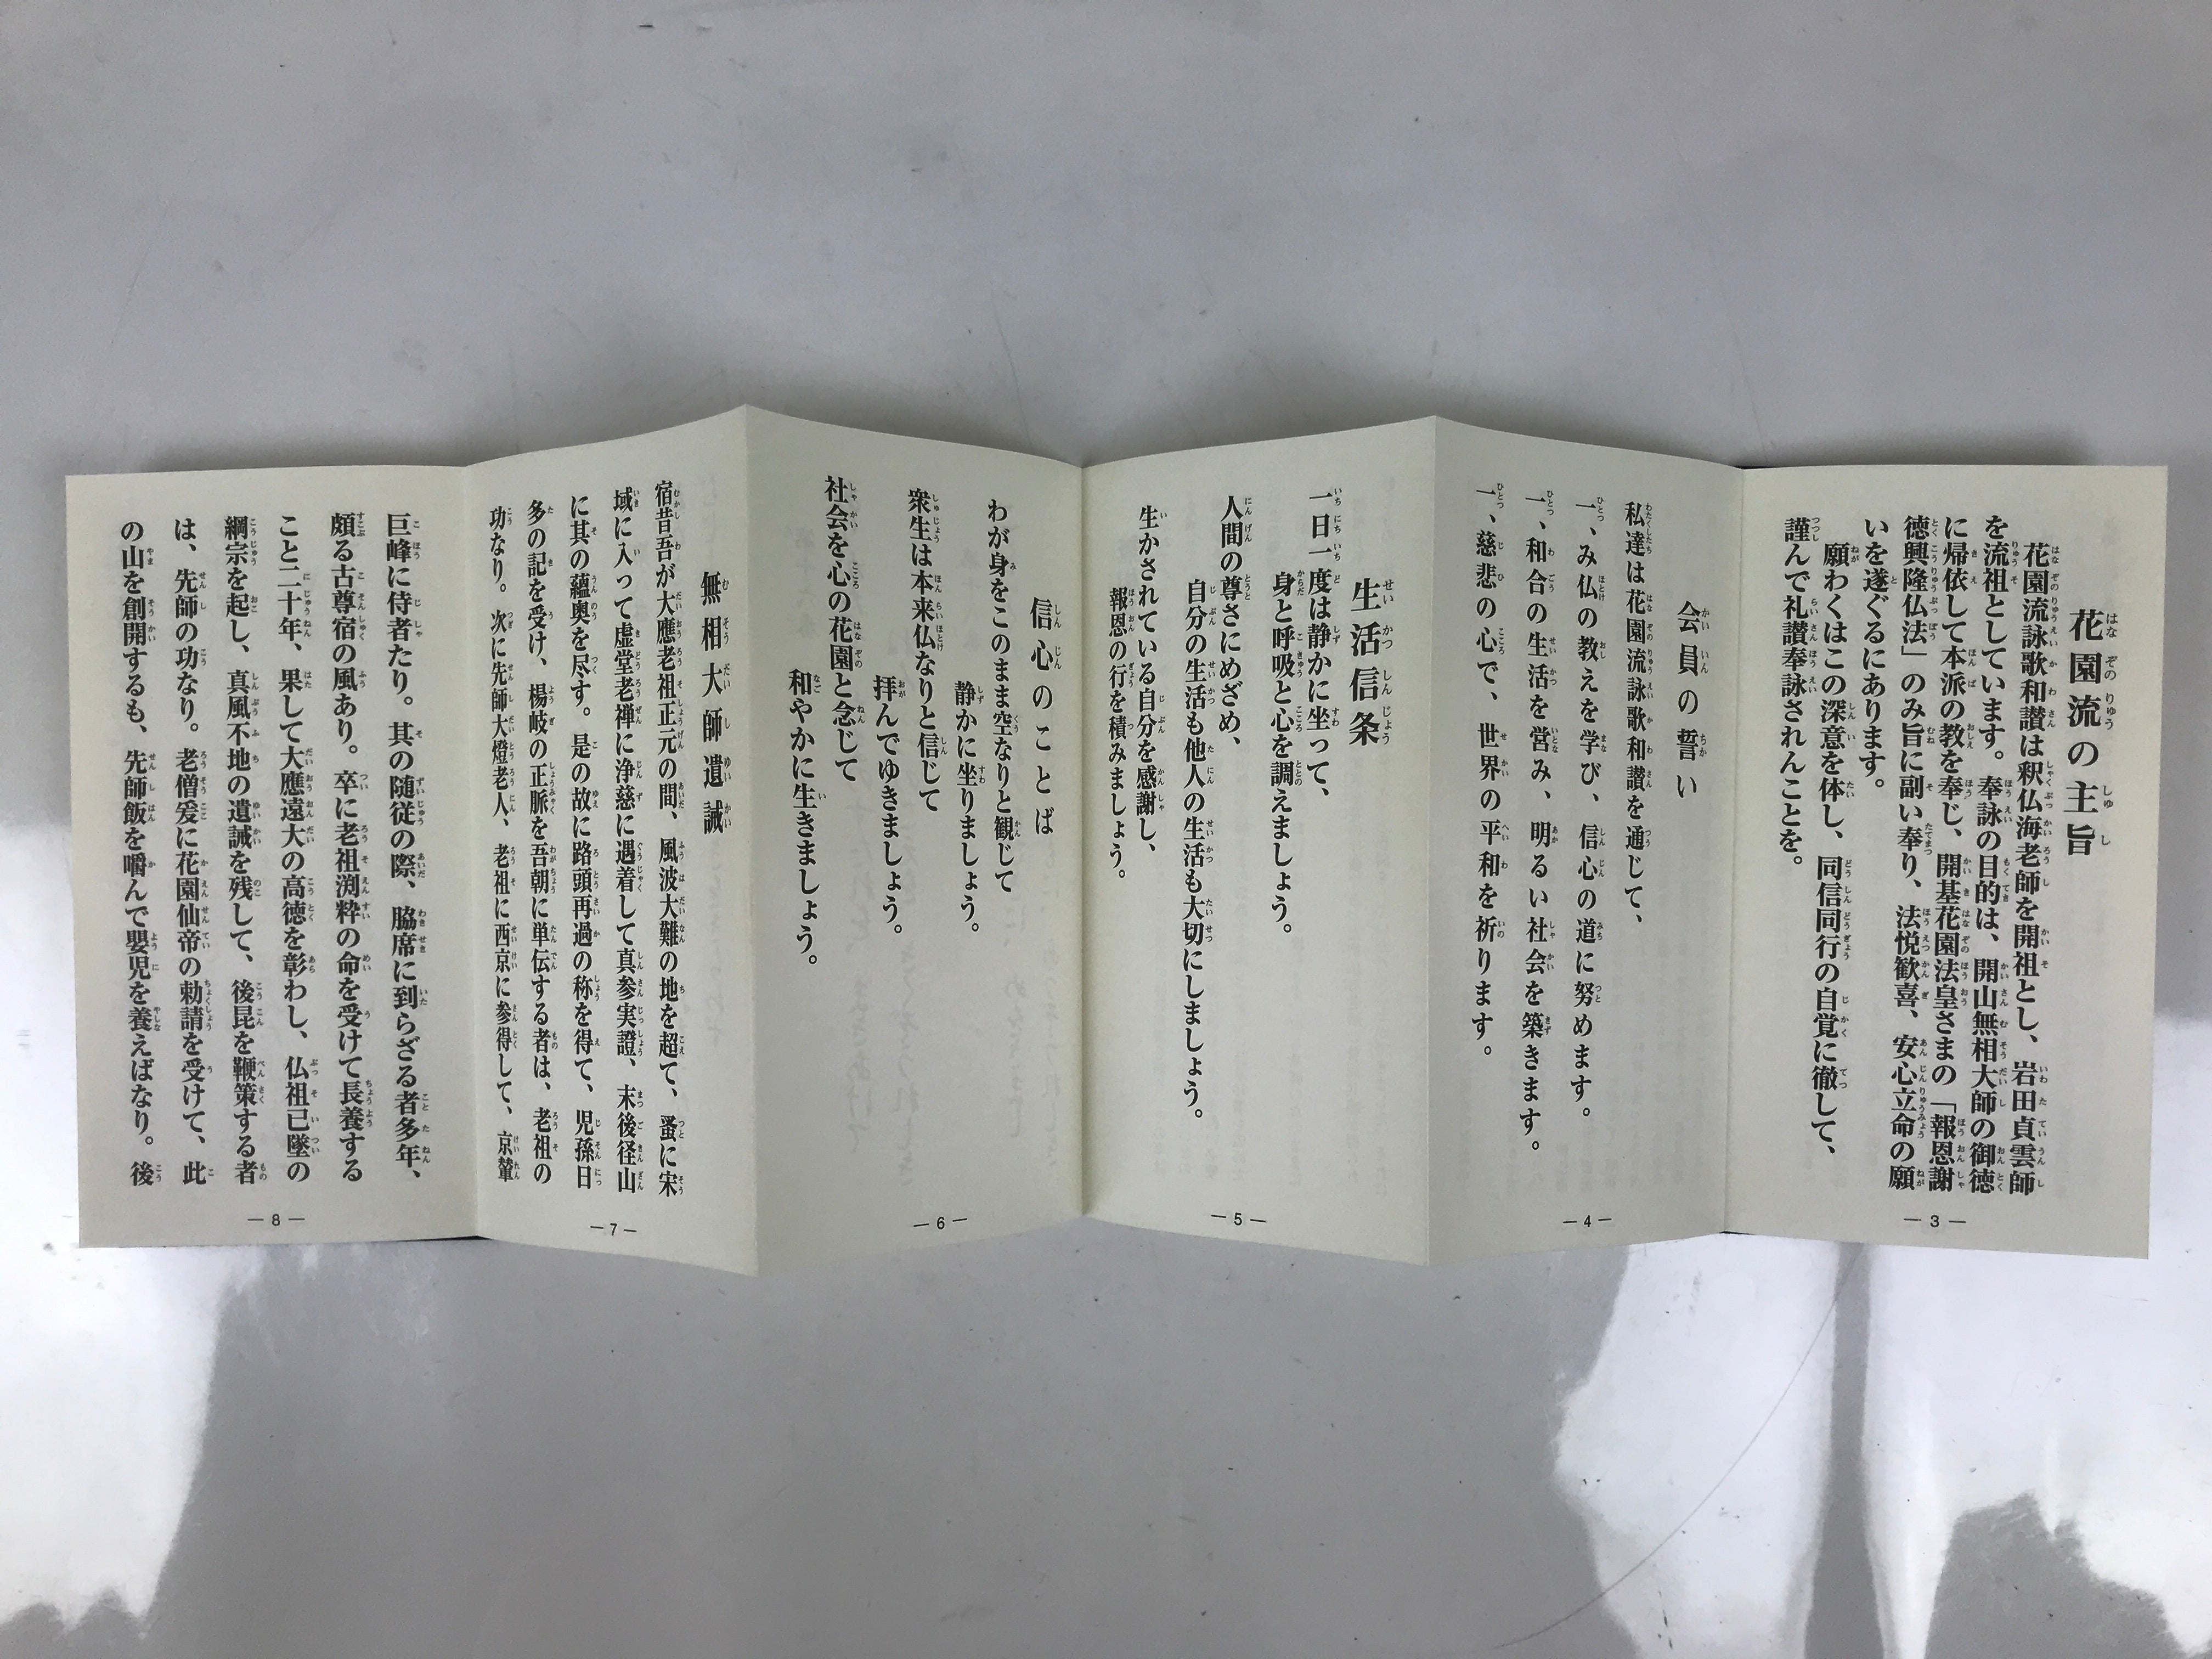 花園流の主旨
花園流詠歌和讃は釈仏海老師を開祖とし、岩田貞雲師
を流祖としています。奉詠の目的は、開山無相大師の御徳
に帰依して本派の教を奉じ、開基花園法皇さまの「報恩謝
徳興隆仏法」のみ旨に副い奉り、法悦歓喜、安心立命の願
いを遂ぐるにあります。
願わくはこの深意を体し、同信同行の自覚に徹して、
謹んで礼讃奉詠されんことを。
― 3 ―
会員の誓い
私達は花園流詠歌和讃を通じて、
一、み仏の教えを学び、信心の道に努めます。
一、和合の生活を営み、明るい社会を築きます。
一、慈悲の心で、世界の平和を祈ります。
― 4 ―
生活信条
一日一度は静かに坐って、
身と呼吸と心を調えましょう。
人間の尊さにめざめ、
自分の生活も他人の生活も大切にしましょう。
生かされている自分を感謝し、
報恩の行を積みましょう。
― 5 ―
信心のことば
わが身をこのまま空なりと観じて
静かに坐りましょう。
衆生は本来仏なりと信じて
拝んでゆきましょう。
社会を心の花園と念じて
和やかに生きましょう。
― 6 ―
無相大師遺誡
宿昔吾が大應老祖正元の間、風波大難の地を超て、蚤に宋
域に入って虚堂老禅に浄慈に遇着して真参実證、末後径山
に其の蘊奥を尽す。是の故に路頭再過の称を得て、児孫日
多の記を受け、楊岐の正脈を吾朝に単伝する者は、老祖の
功なり。次に先師大燈老人、老祖に西京に参得して、京輦
― 7 ―
巨峰に侍者たり。其の随従の際、脇席に到らざる者多年、
頗る古尊宿の風あり。卒に老祖渕粋の命を受けて長養する
こと二十年、果して大應遠大の高徳を彰わし、仏祖已墜の
綱宗を起し、真風不地の遺誡を残して、後昆を鞭策する者
は、先師の功なり。老僧爰に花園仙帝の勅請を受けて、此
の山を創開するも、先師飯を嚼んで嬰児を養えばなり。後
― 8 ―